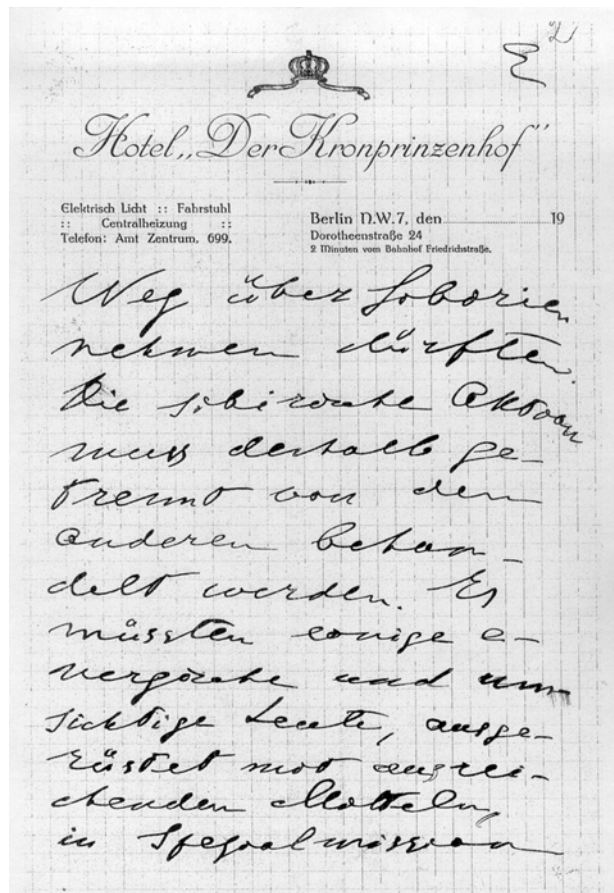 2
Hotel „Der Kronprinzenhof"
Elektrisch Licht :: Fahrstuhl
:: Centralheizung ::
Telefon: Amt Zentrum, 699.
Berlin N.W.7, den 19
Dorotheenstraße 24
2 Minuten vom Bahnhof Friedrichstraße.
Weg über Sibirien
nehmen dürften.
Die sibirische Aktion
muss deshalb ge-
trennt von den
anderen behan-
delt werden. Es
müssten einige e-
nergische und um-
sichtige Leute, ausge-
rüstet mit ausrei-
chenden Mitteln,
in Spezialmission